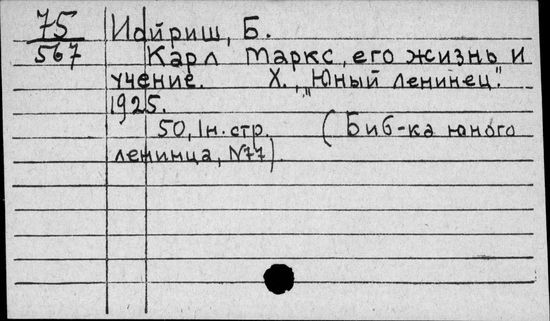 75
567
Иойриш, Б.
Карл Маркс, его жизнь и
учение. Х., „Юный ленинец".
1925.
50, 1н. стр. (Биб-ка юного
ленинца, N77).